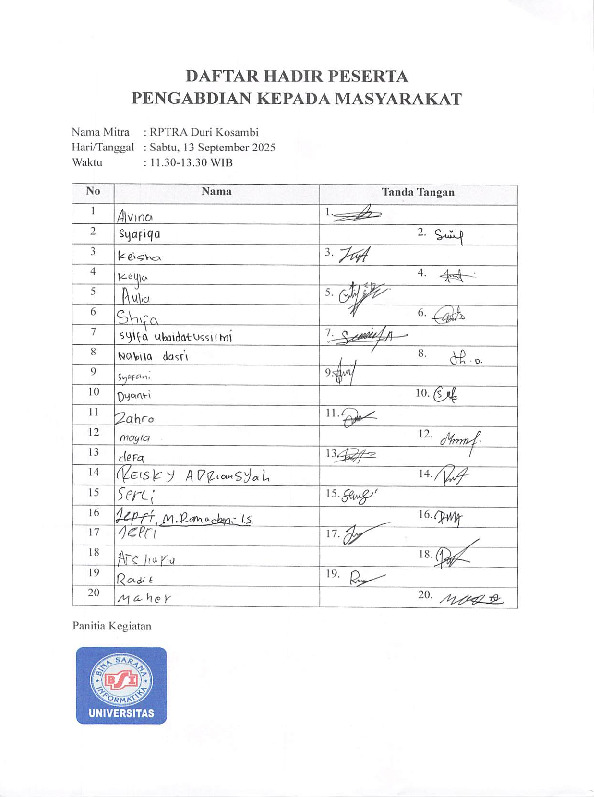 DAFTAR HADIR PESERTA
PENGABDIAN KEPADA MASYARAKAT
Nama Mitra : RPTRA Duri Kosambi
Hari/Tanggal : Sabtu, 13 September 2025
Waktu : 11.30-13.30 WIB
No Nama Tanda Tangan
1 Alvina 1.
2 Syafiqa 2.
3 Keisha 3.
4 Keyla 4.
5 Aulia 5.
6 6.
7 Syifa 7.
8 Nabila dasri 8.
9 9.
10 Dyanti 10.
11 Zahro 11.
12 12.
13 defa 13.
14 REISKY ADRiansyah 14.
15 Serli 15.
16 M. 16.
17 17.
18 18.
19 Radit 19.
20 Maher 20.
Panitia Kegiatan
BINA SARANA
BSI
INFORMATIKA
UNIVERSITAS